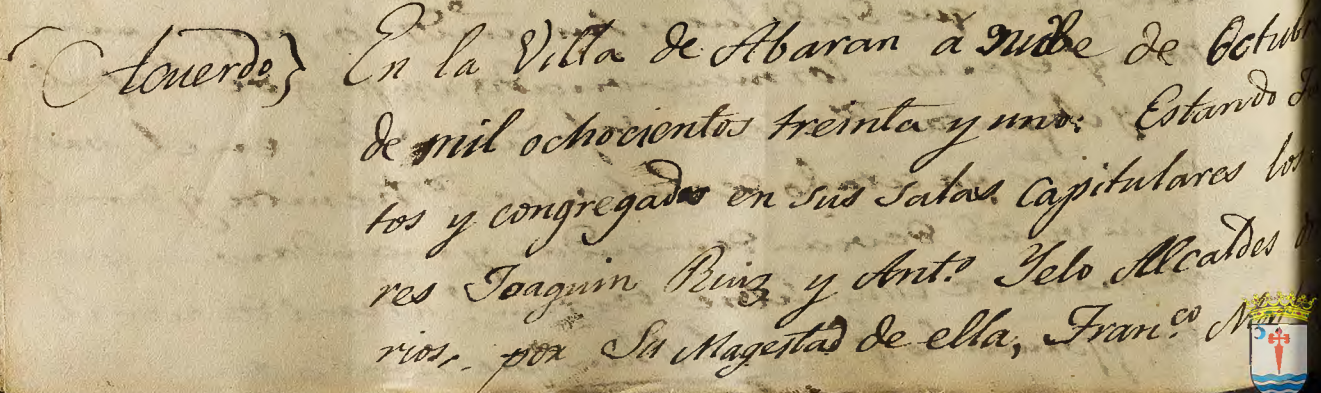 Acuerdo} En la Villa de Abaran a nueve de Octub
de mil ochocientos treinta y uno: Estando
tos y congregados en sus salas Capitulares los
res Joaquin Ruiz y Ant.º Yelo Alcaldes
rios, por Su Magestad de ella, Fran.co